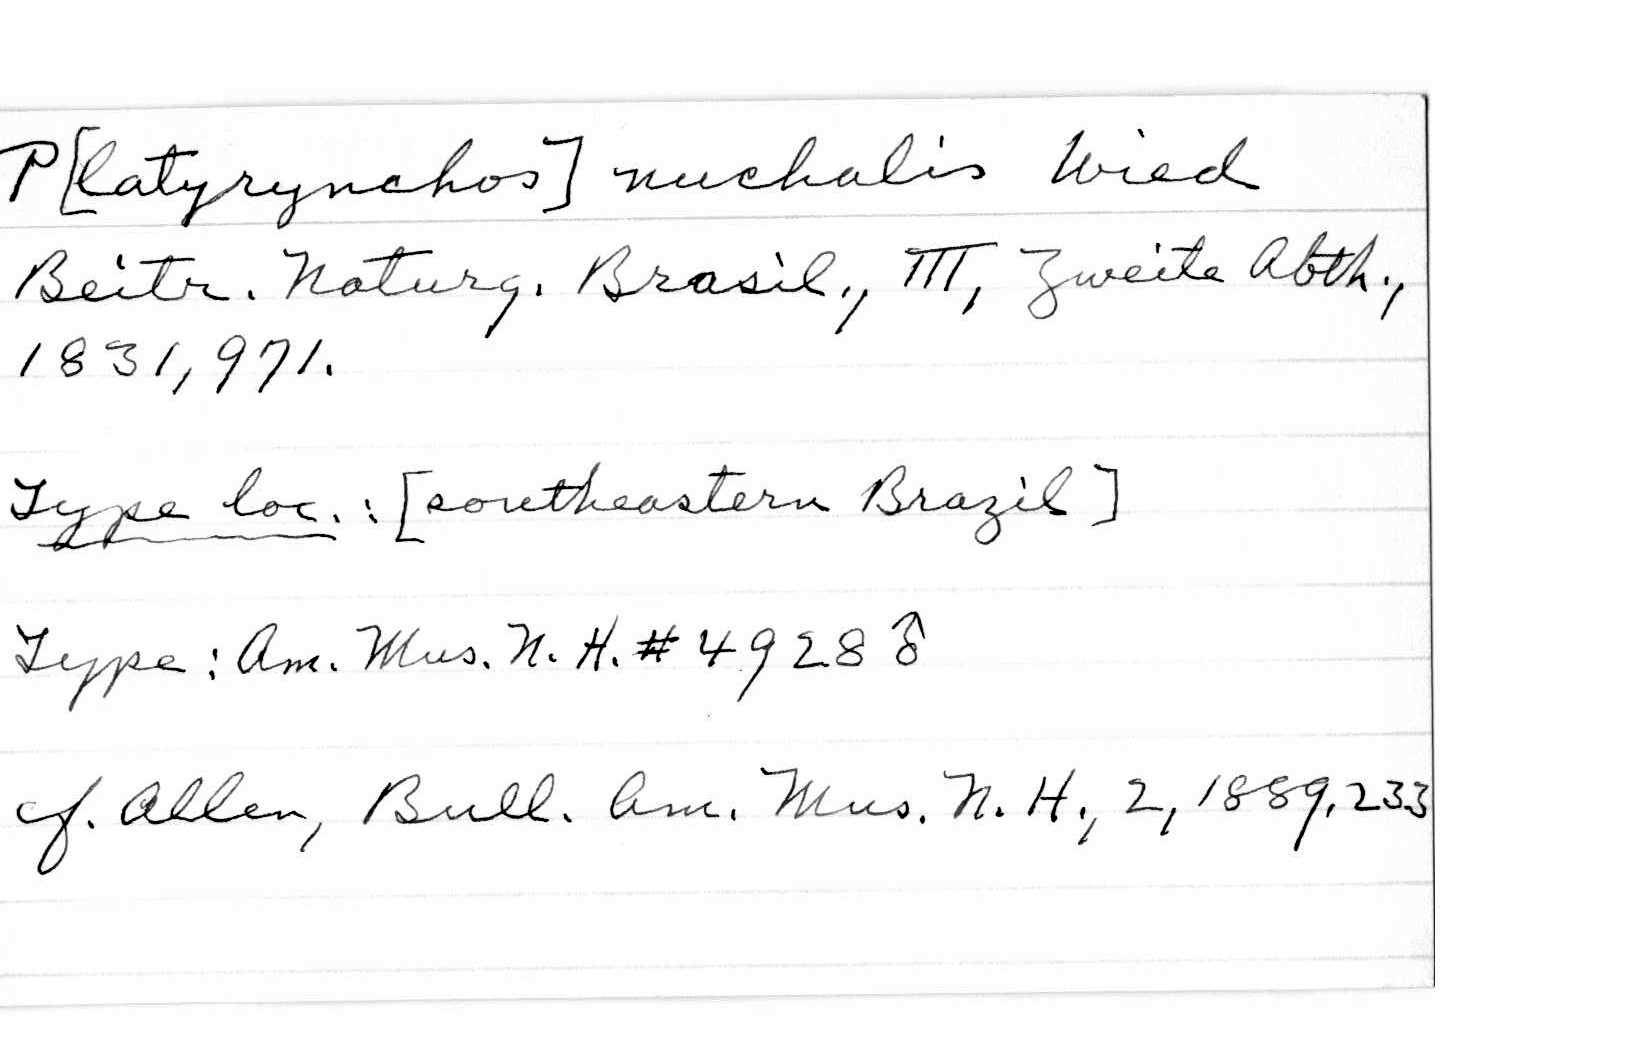 P[latyrynchos] nuchalis Wied
Beitr. Naturg. Brasil., III, Zweite Abth.,
1831, 971.
Type loc.: [southeastern Brazil]
Type: Am. Mus. N. H. # 4928 ♂
cf. Allen, Bull. Am. Mus. N. H., 2, 1889, 233